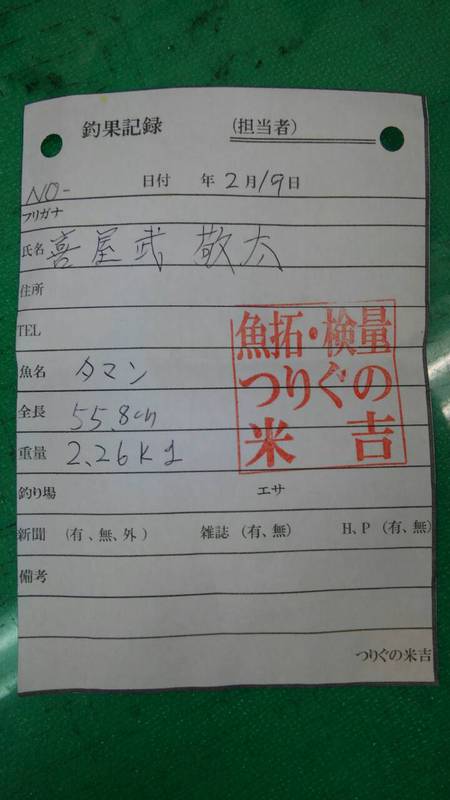 釣果記録 (担当者)
NO- 日付 年 2月19日
フリガナ
氏名 喜屋武 敬太
住所
TEL
魚名 タマン
全長 55.8cm
重量 2.26kg
魚拓・検量
つりぐの
米吉
釣り場 エサ
新聞 (有、無、外) 雑誌 (有、無) H、P (有、無)
備考
つりぐの米吉